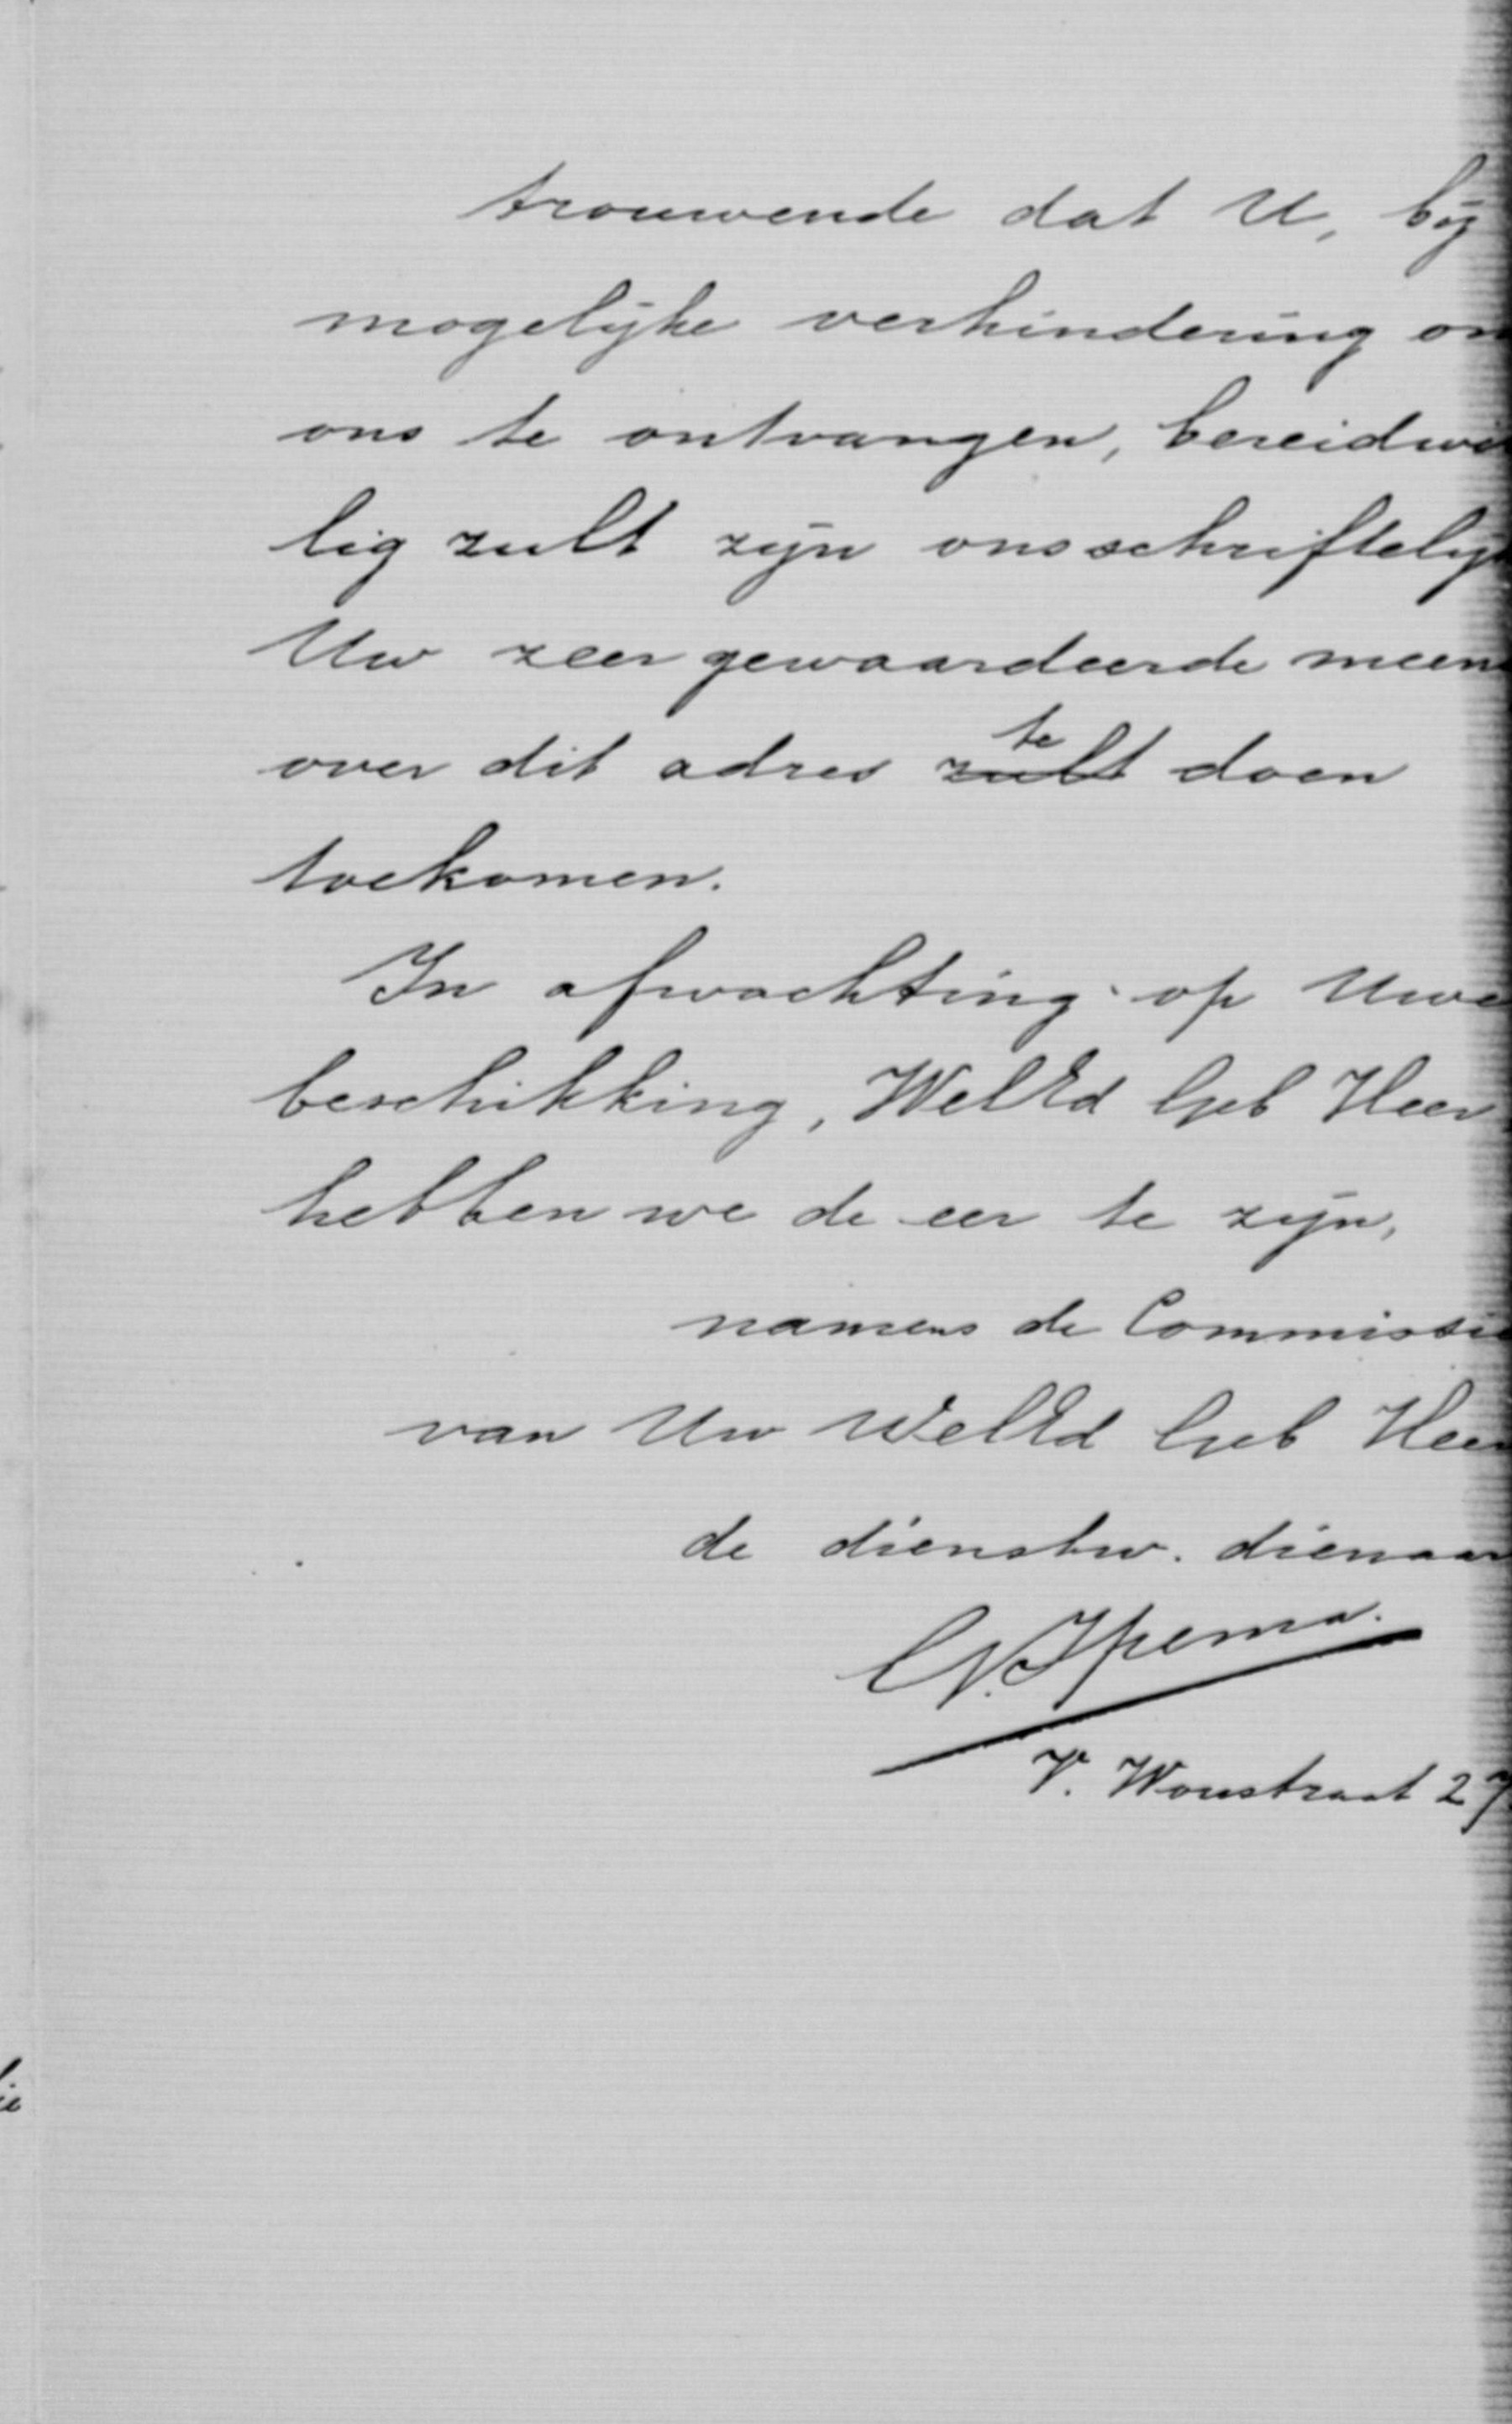 trouwende dat U, bij
mogelijke verhindering om
ons te ontvangen, bereidwil
lig zult zijn ons schriftelijk
Uw zeer gewaardeerde meen
over dit adres zult te doen
toekomen.
In afwachting op Uwe
beschikking, WelEd Geb Heer
hebben we de eer te zijn,
namens de Commissie
van Uw WelEd Geb Heer
de dienstw. dienaar
N. Ypema.
V. Woustraat 27